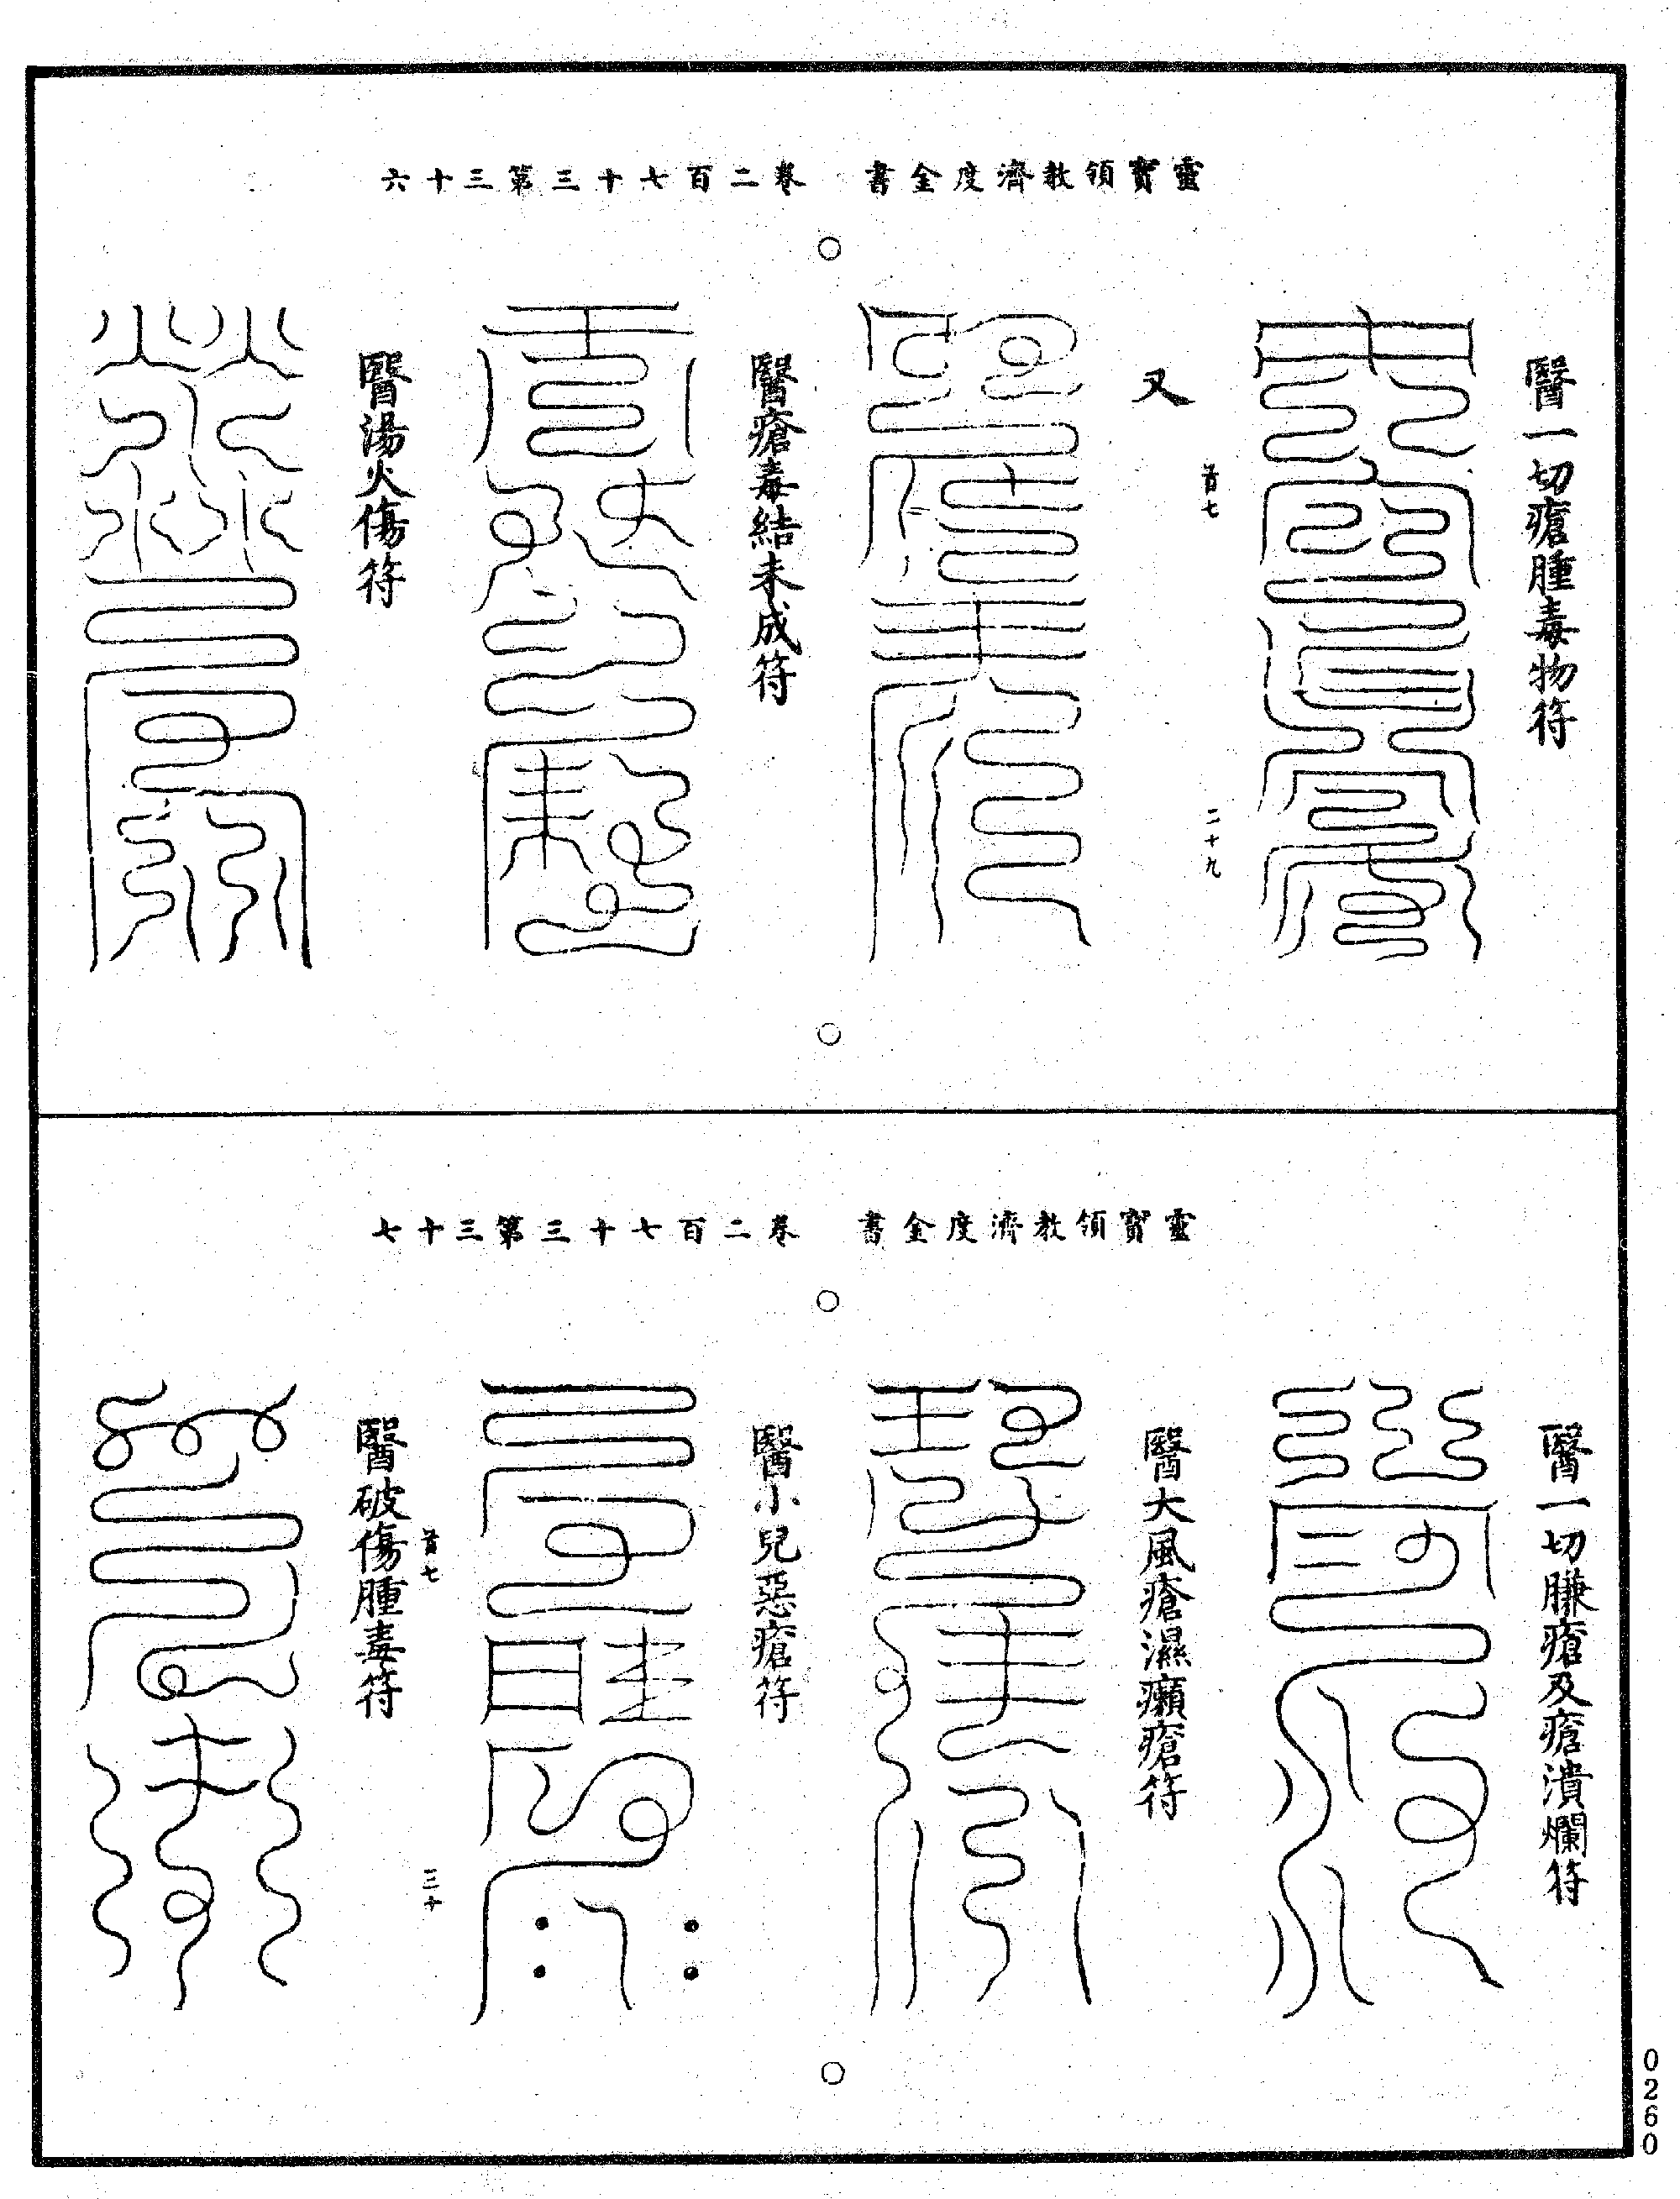 靈寶領教濟度金書　卷二百七十三第三十六
醫一切瘡腫毒物符
又
首七
二十九
醫瘡毒結未成符
醫湯火傷符
靈寶領教濟度金書　卷二百七十三第三十七
醫一切臁瘡及瘡潰爛符
醫大風瘡濕癩瘡符
醫小兒惡瘡符
首七
三十
醫破傷腫毒符
0260